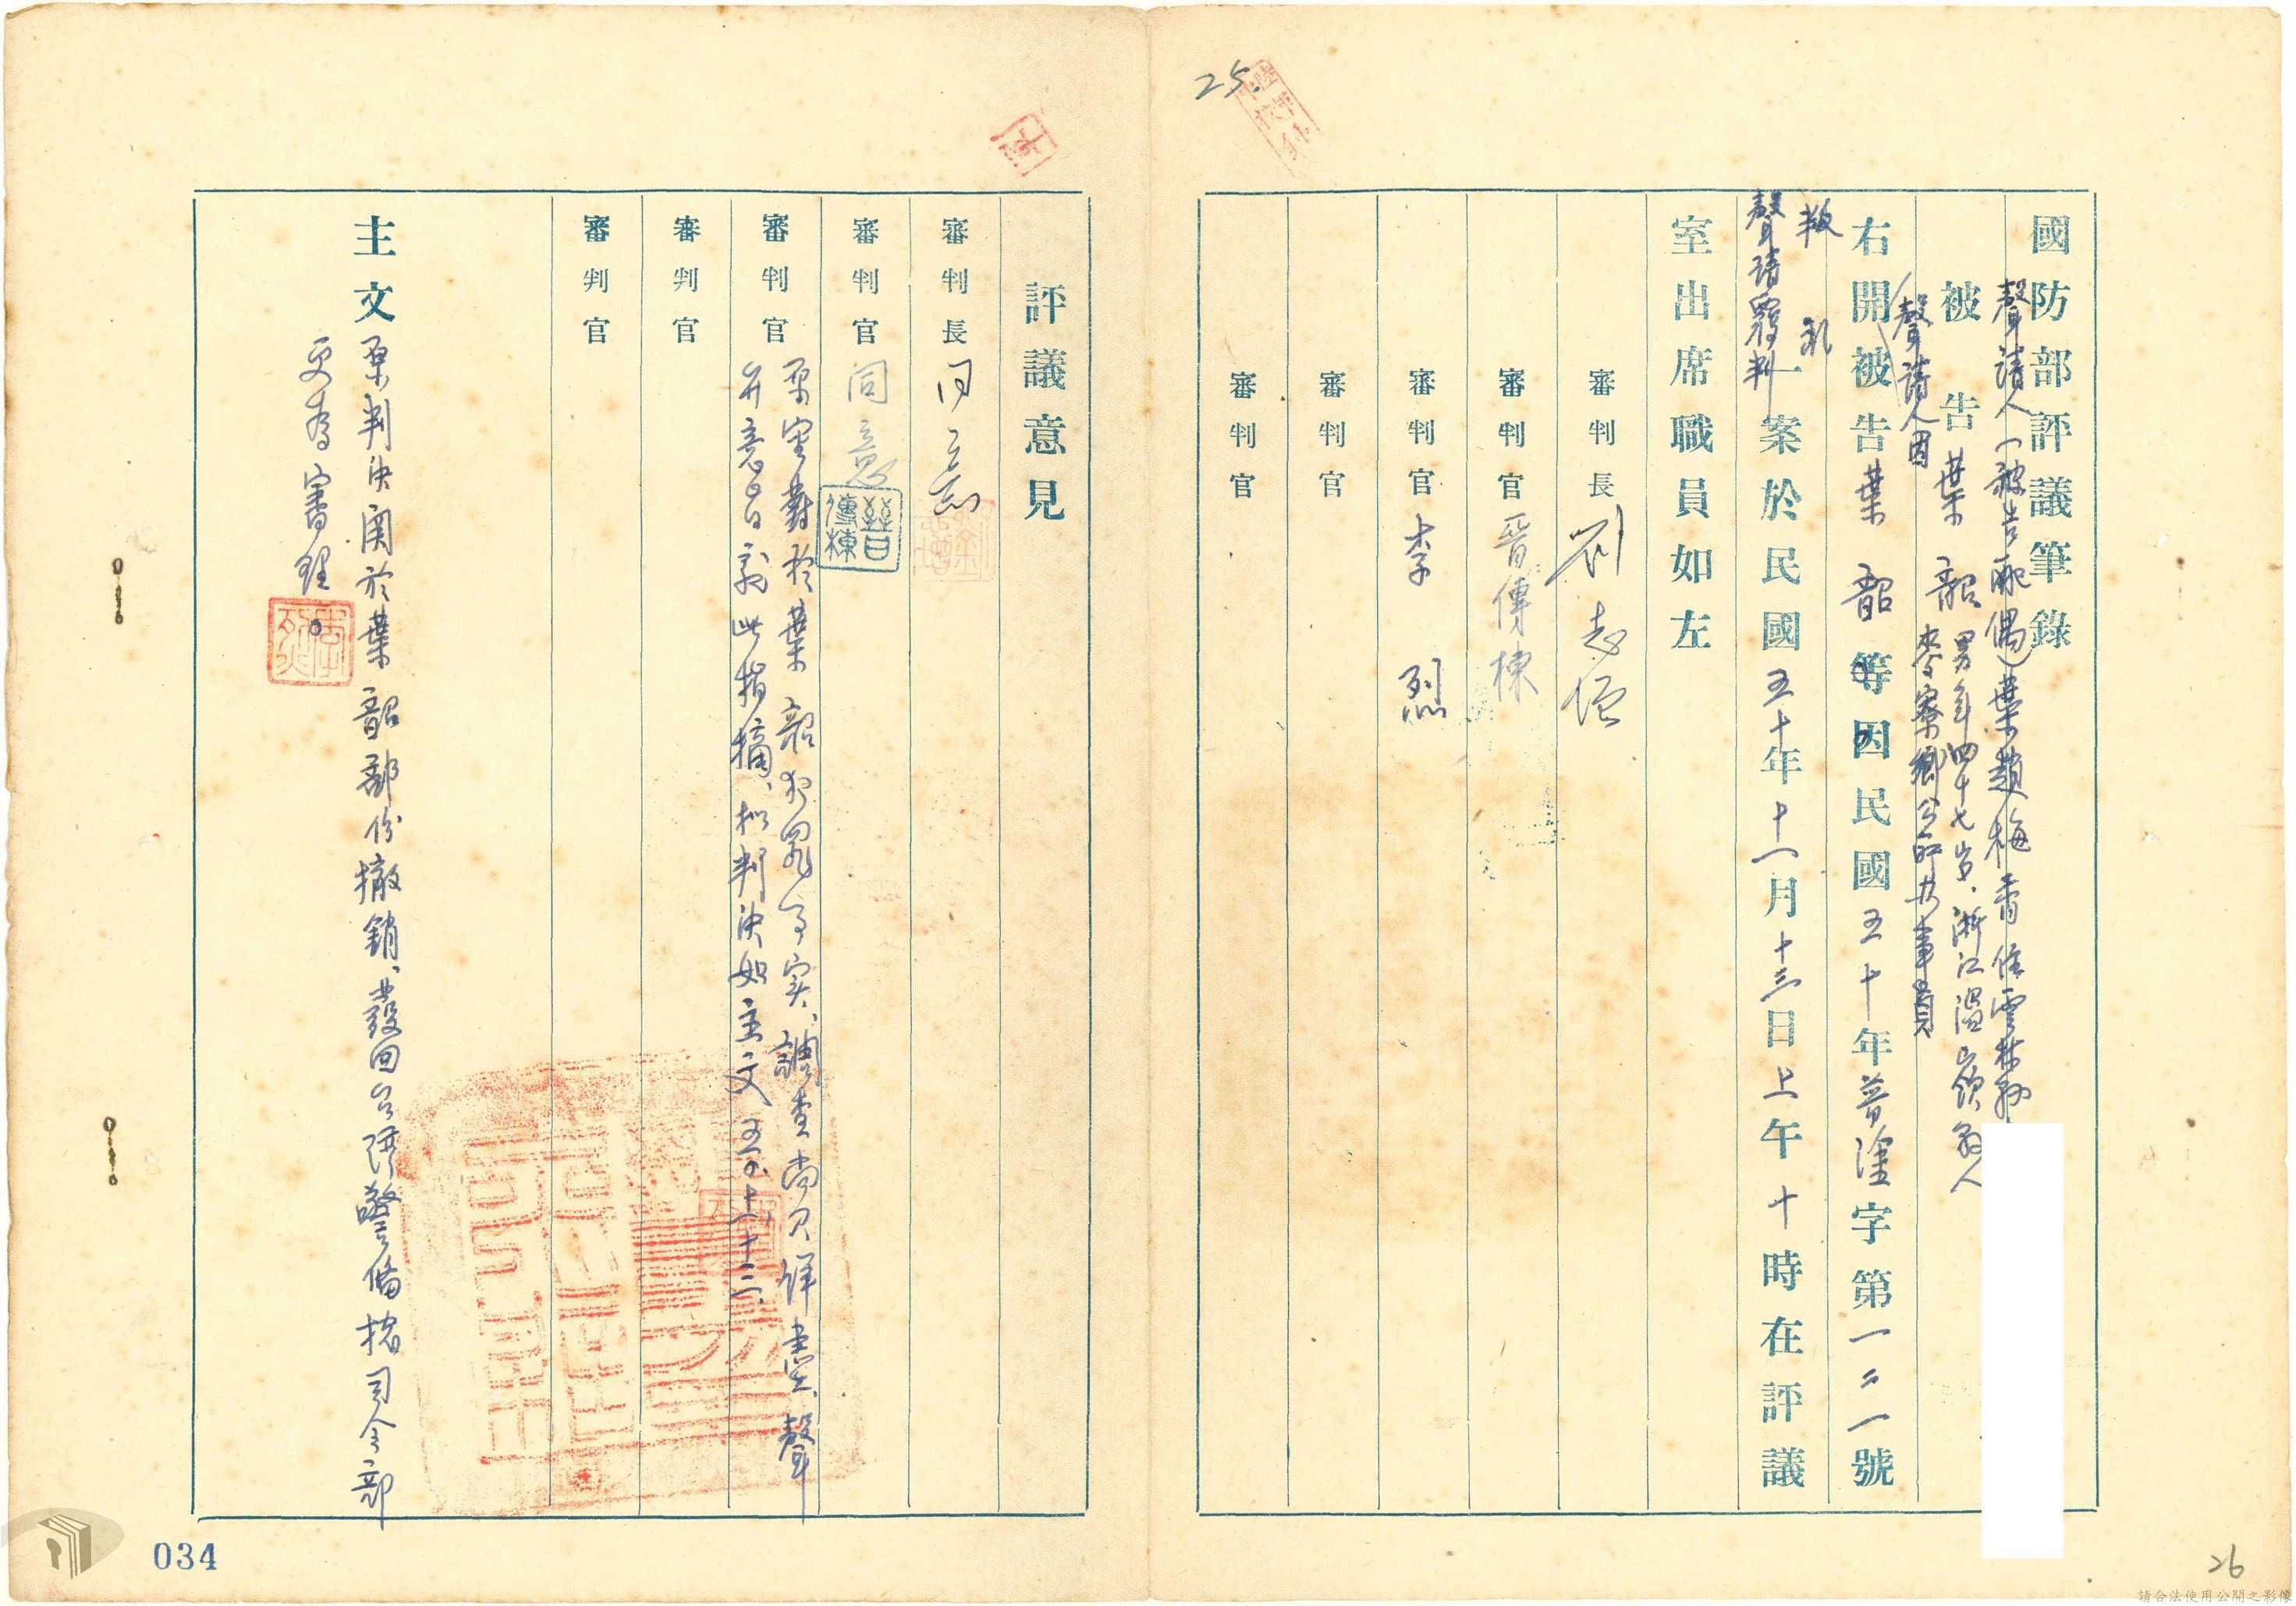 25.
國防部評議筆錄
聲請人(被告配偶)葉趙梅香住雲林縣
被告葉 韶 男年四十七歲、浙江溫嶺縣人
麥寮鄉公所幹事員
聲請人因
右開被告葉 韶等因民國五十年普塗字第一二一號
叛亂
聲請覆判一案於民國五十年十一月十三日上午十時在評議
室出席職員如左
審判長 劉志恆
審判官 晉傳棟
審判官 李 烈
審判官
審判官
評議意見
審判長 同意
審判官 同意
晉傳棟
審判官 原審對於葉 韶犯罪事實、調查尚欠詳盡、聲
請意旨執此指摘、擬判決如主文 五0、十一、十三、
審判官
審判官
主文 原判決關於葉 韶部份撤銷、發回台灣警備總司令部
更為審理。
李烈
034
26
請合法使用公開之影像